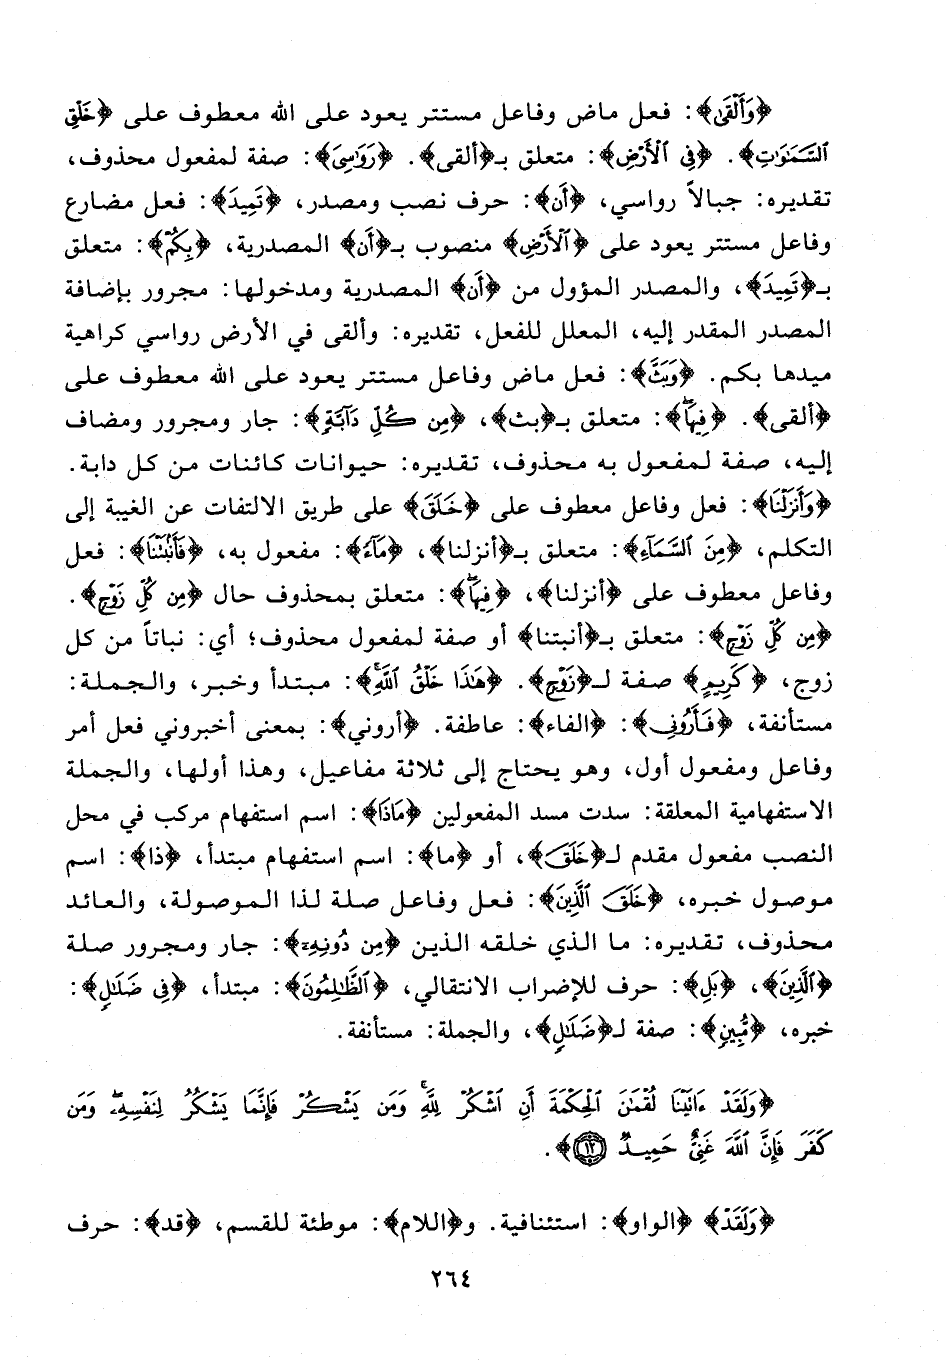 ﴿وَأَلْقَىٰ﴾: فعل ماض وفاعل مستتر يعود على الله معطوف على ﴿خَلَقَ
ٱلسَّمَٰوَٰتِ﴾. ﴿فِي ٱلْأَرْضِ﴾: متعلق بـ﴿ألقى﴾. ﴿رَوَٰسِيَ﴾: صفة لمفعول محذوف،
تقديره: جبالاً رواسي، ﴿أَن﴾: حرف نصب ومصدر، ﴿تَمِيدَ﴾: فعل مضارع
وفاعل مستتر يعود على ﴿ٱلْأَرْضِ﴾ منصوب بـ﴿أَن﴾ المصدرية، ﴿بِكُمْ﴾: متعلق
بـ﴿تَمِيدَ﴾، والمصدر المؤول من ﴿أَن﴾ المصدرية ومدخولها: مجرور بإضافة
المصدر المقدر إليه، المعلل للفعل، تقديره: وألقى في الأرض رواسي كراهية
ميدها بكم. ﴿وَبَثَّ﴾: فعل ماض وفاعل مستتر يعود على الله معطوف على
﴿ألقى﴾. ﴿فِيهَا﴾: متعلق بـ﴿بث﴾، ﴿مِن كُلِّ دَآبَّةٍ﴾: جار ومجرور ومضاف
إليه، صفة لمفعول به محذوف، تقديره: حيوانات كائنات من كل دابة.
﴿وَأَنزَلْنَا﴾: فعل وفاعل معطوف على ﴿خَلَقَ﴾ على طريق الالتفات عن الغيبة إلى
التكلم، ﴿مِنَ ٱلسَّمَآءِ﴾: متعلق بـ﴿أنزلنا﴾، ﴿مَآءً﴾: مفعول به، ﴿فَأَنۢبَتْنَا﴾: فعل
وفاعل معطوف على ﴿أنزلنا﴾، ﴿فِيهَا﴾: متعلق بمحذوف حال ﴿مِن كُلِّ زَوْجٍ﴾.
﴿مِن كُلِّ زَوْجٍ﴾: متعلق بـ﴿أنبتنا﴾ أو صفة لمفعول محذوف؛ أي: نباتاً من كل
زوج، ﴿كَرِيمٍ﴾ صفة لـ﴿زَوْجٍ﴾. ﴿هَٰذَا خَلْقُ ٱللَّهِ﴾: مبتدأ وخبر، والجملة:
مستأنفة، ﴿فَأَرُونِي﴾: ﴿الفاء﴾: عاطفة. ﴿أروني﴾: بمعنى أخبروني فعل أمر
وفاعل ومفعول أول، وهو يحتاج إلى ثلاثة مفاعيل، وهذا أولها، والجملة
الاستفهامية المعلقة: سدت مسد المفعولين ﴿مَاذَا﴾: اسم استفهام مركب في محل
النصب مفعول مقدم لـ﴿خَلَقَ﴾، أو ﴿ما﴾: اسم استفهام مبتدأ، ﴿ذا﴾: اسم
موصول خبره، ﴿خَلَقَ ٱلَّذِينَ﴾: فعل وفاعل صلة لذا الموصولة، والعائد
محذوف، تقديره: ما الذي خلقه الذين ﴿مِن دُونِهِۦ﴾: جار ومجرور صلة
﴿ٱلَّذِينَ﴾، ﴿بَلِ﴾: حرف للإضراب الانتقالي، ﴿ٱلظَّٰلِمُونَ﴾: مبتدأ، ﴿فِي ضَلَٰلٍ﴾:
خبره، ﴿مُّبِينٍ﴾: صفة لـ﴿ضَلَٰلٍ﴾، والجملة: مستأنفة.
﴿وَلَقَدْ ءَاتَيْنَا لُقْمَٰنَ ٱلْحِكْمَةَ أَنِ ٱشْكُرْ لِلَّهِ وَمَن يَشْكُرْ فَإِنَّمَا يَشْكُرُ لِنَفْسِهِۦ وَمَن
كَفَرَ فَإِنَّ ٱللَّهَ غَنِيٌّ حَمِيدٌ ١٢﴾.
﴿وَلَقَدْ﴾ ﴿الواو﴾: استئنافية. و﴿اللام﴾: موطئة للقسم، ﴿قد﴾: حرف
٢٦٤